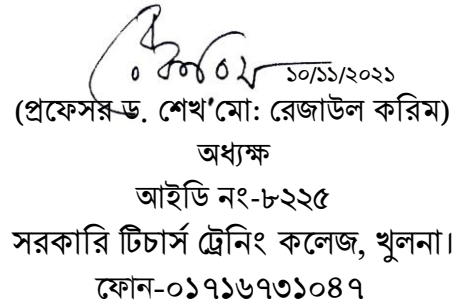 ১০/১১/২০২১
(প্রফেসর ড. শেখ মো: রেজাউল করিম)
অধ্যক্ষ
আইডি নং-৮২২৫
সরকারি টিচার্স ট্রেনিং কলেজ, খুলনা।
ফোন-০১৭১৬৭৩১০৪৭